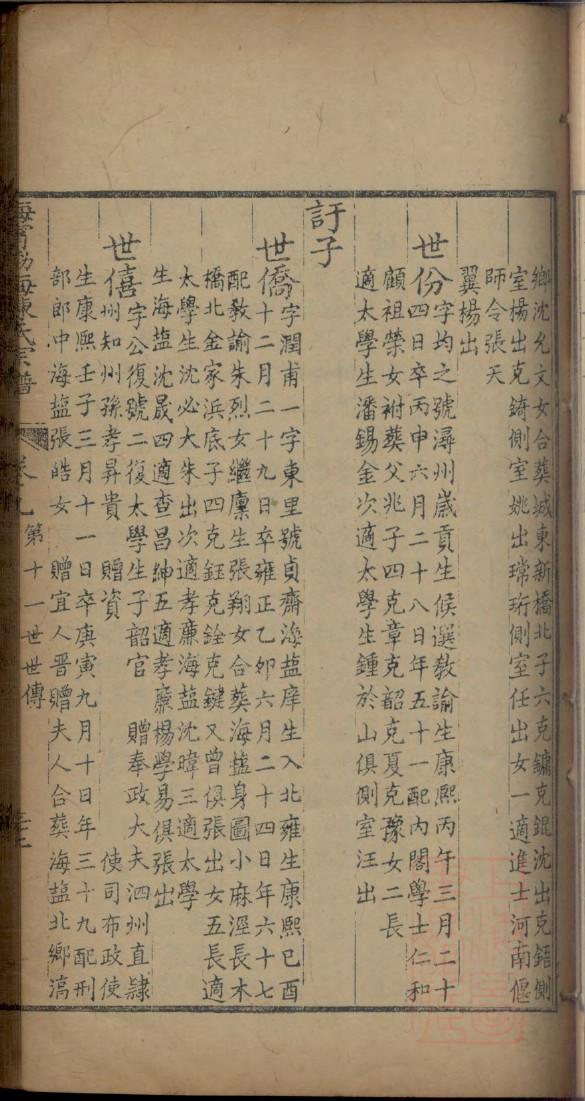 鄉沈允文女合葬城東新橋北子六克鏞克錕沈出克鋙側
室楊出克錡側室姚出瑺珩側室任出女一適進士河南偃
師令張天
翼楊出
世份字均之號潯州歲貢生候選教諭生康熙丙午三月二十
四日卒丙申六月二十八日年五十一配內閣學士仁和
顧祖榮女祔葬父兆子四克章克韶克夏克豫女二長
適太學生潘錫金次適太學生鍾於山俱側室汪出
訏子
世僑字潤甫一字東里號貞齋海盐庠生入北雍生康熙己酉
十二月二十九日卒雍正乙卯六月二十四日年六十七
配教諭朱烈女繼廩生張翔女合葬海盐身圖小麻涇長木
橋北金家浜底子四克鈺克銓克鍵又曾俱張出女五長適
太學生沈必大朱出次適孝廉海盐沈暐三適太學
生海盐沈晟四適查昌紳五適孝廉楊學易俱張出
世僖字公復號二復太學生子韶官 贈奉政大夫泗州直隸
州知州孫孝昇貴 贈資 使司布政使
生康熙壬子三月十一日卒庚寅九月十日年三十九配刑
部郎中海盐張皓女 贈宜人晋贈夫人合葬海盐北鄉㵆
海寧渤海陳氏宗譜 卷九 第十一世世傳